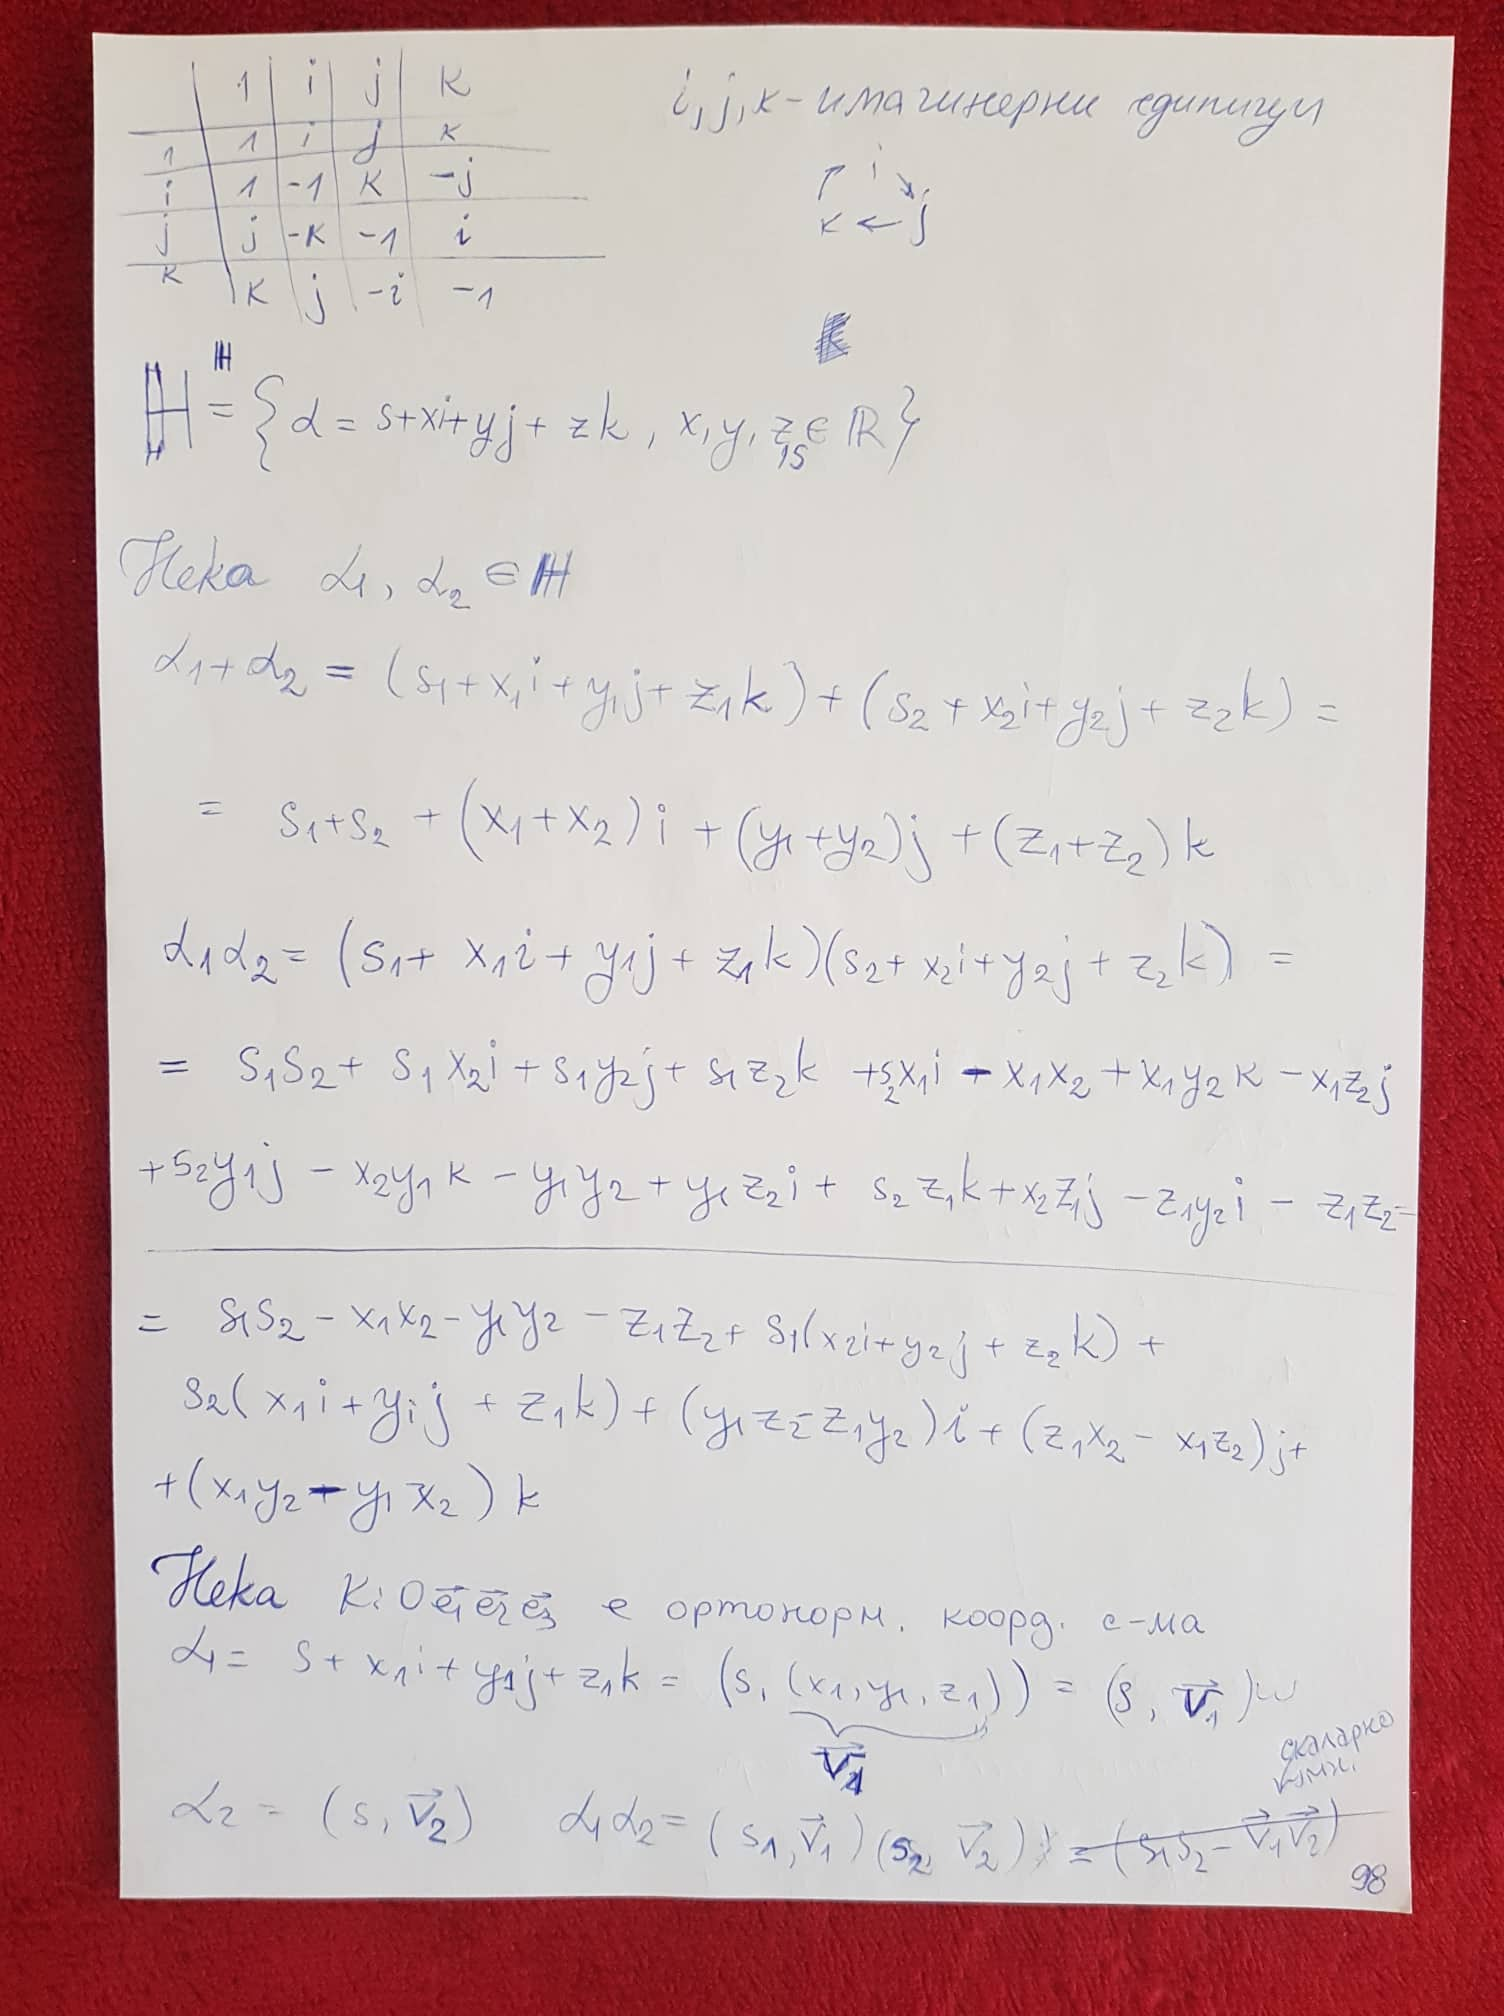 1 i j k
1 1 i j k
i 1 -1 k -j
j j -k -1 i
k k j -i -1
i, j, k - имагинерни единици
i
k ← j
H
ℍ = {α = s+xi+yj+zk, x, y, z, s ∈ ℝ}
Нека α1, α2 ∈ ℍ
α1+α2 = (s1+x1i+y1j+z1k)+(s2+x2i+y2j+z2k) =
= s1+s2 + (x1+x2)i + (y1+y2)j + (z1+z2)k
α1α2 = (s1+ x1i + y1j + z1k)(s2+ x2i+y2j + z2k) =
= s1s2+ s1x2i + s1y2j + s1z2k +s2x1i - x1x2 + x1y2k - x1z2j
+s2y1j - x2y1k - y1y2 + y1z2i + s2z1k+x2z1j - z1y2i - z1z2 =
= s1s2 - x1x2 - y1y2 - z1z2 + s1(x2i+y2j + z2k) +
s2(x1i+y1j + z1k) + (y1z2 - z1y2)i + (z1x2 - x1z2)j+
+(x1y2 - y1x2)k
Нека K: O e⃗1 e⃗2 e⃗3 е ортонорм. коорд. с-ма
α1 = s+ x1i + y1j + z1k = (s, (x1, y1, z1)) = (s, v⃗1)
v⃗1
скаларно
умн.
α2 = (s, v⃗2) α1α2 = (s1, v⃗1)(s2, v⃗2) = (s1s2 - v⃗1v⃗2)
98